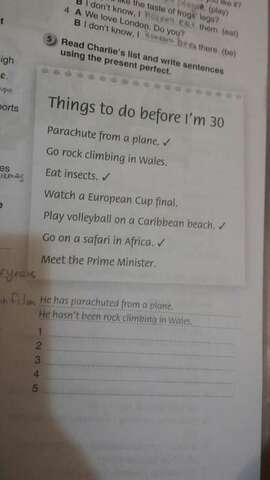 you like it?
(play)
the taste of frogs' legs?
B I don't know, I never eat them (eat)
4 A We love London. Do you?
B I don't know, I there. (be)
5 Read Charlie's list and write sentences
using the present perfect.
Things to do before I'm 30
Parachute from a plane. ✓
Go rock climbing in Wales.
Eat insects. ✓
Watch a European Cup final.
Play volleyball on a Caribbean beach. ✓
Go on a safari in Africa. ✓
Meet the Prime Minister.
He has parachuted from a plane.
He hasn't been rock climbing in Wales.
1
2
3
4
5
igh
c.
ports
es